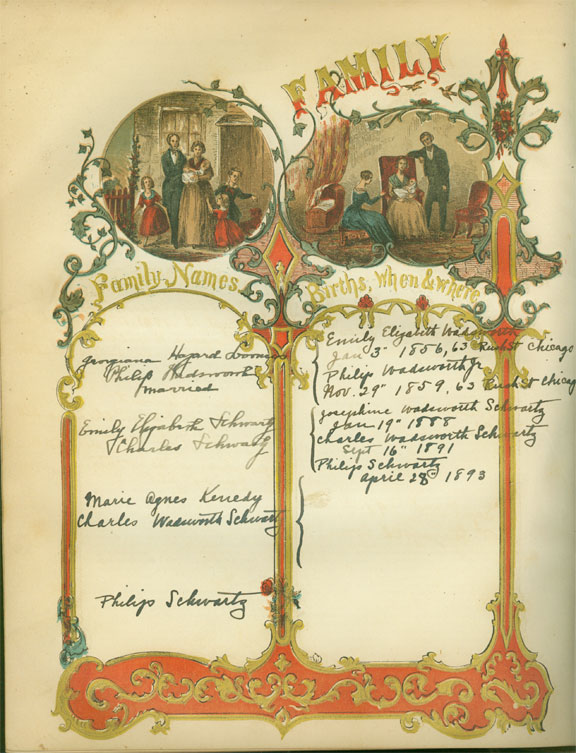 FAMILY
Family Names
Births, when & where
Georgiana Hazard Loomis
Philip Wadsworth
married
Emily Elizabeth Schwartz
Charles Schwartz
Marie Agnes Kenedy
Charles Wadsworth Schwartz
Philip Schwartz
Emily Elizabeth Wadsworth
Jan 3" 1856, 63 Rush St Chicago
Philip Wadsworth Jr
Nov. 29" 1859, 63 Rush St Chicago
Josephine Wadsworth Schwartz
Jan 19" 1888
Charles Wadsworth Schwartz
Sept 16" 1891
Philip Schwartz
April 28" 1893